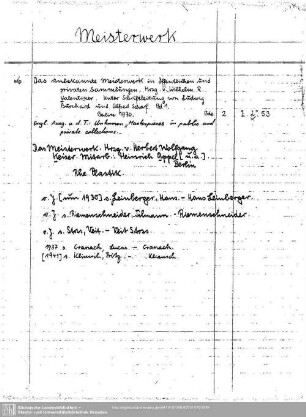 Meisterwerk
Das unbekannte Meisterwerk in öffentlichen und
privaten Sammlungen. Hrsg. v. Wilhelm R.
Valentiner. Unter Schriftleitung von Ludwig
Burchard und Alfred Scharf. Bd 1.
Berlin 1930. 2 I. 53
Engl. Ausg. u. d. T.: Unknown Masterpieces in public and
private collections.
Das Meisterwerk. Hrsg. v. Herbert Wolfgang
Keiser. Mitarb. Heinrich Appel [u. a.].
Berlin
Die Plastik.
o. J. [um 1930] s. Leinberger, Hans. - Hans Leinberger.
o. J. s. Riemenschneider, Tilmann - Riemenschneider.
o. J. s. Stoss, Veit. - Veit Stoss
1937 s. Cranach, Lucas - Cranach.
[1941] s. Klimsch, Fritz. - Klimsch